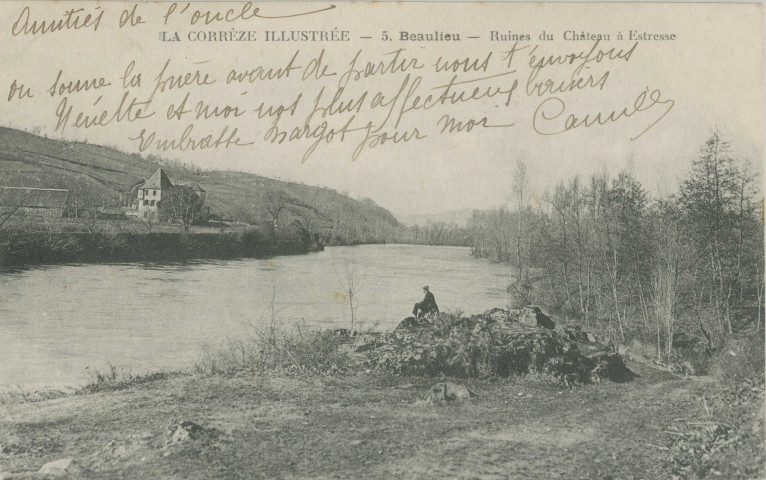 Amitiés de l'oncle
LA CORRÈZE ILLUSTRÉE — 5. Beaulieu — Ruines du Château à Estresse
on sonne la prière avant de partir nous t'envoyons
Nénette et moi nos plus affectueux baisers
Embrasse Margot pour moi Camille